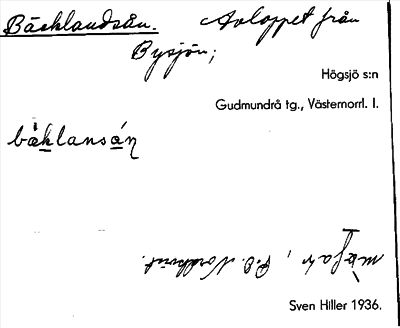 Bäcklandsån. Avloppet från
Bysjön;
Högsjö s:n
Gudmundrå tg., Västernorrl. l.
bäklansån
Nordkvist.
Sven Hiller 1936.